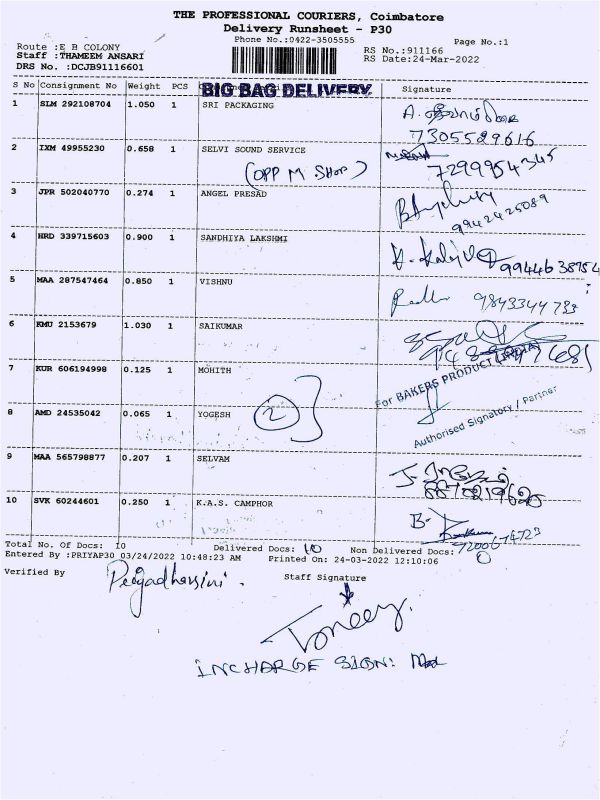 THE PROFESSIONAL COURIERS, Coimbatore
Delivery Runsheet - P30
Phone No.:0422-3505555
Page No.:1
Route :E B COLONY
Staff :THAMEEM ANSARI
DRS No. :DCJB91116601
RS No.:911166
RS Date:24-Mar-2022
S No Consignment No Weight PCS BIG BAG DELIVERY. Signature
1 SLM 292108704 1.050 1 SRI PACKAGING
7305529616
2 IXM 49955230 0.658 1 SELVI SOUND SERVICE
(OPP M SHOP) 7299954345
3 JPR 502040770 0.274 1 ANGEL PRESAD
9942425089
4 HRD 339715603 0.900 1 SANDHIYA LAKSHMI
9944638754
5 MAA 287547464 0.850 1 VISHNU
9843344733
6 KMU 2153679 1.030 1 SAIKUMAR
7 KUR 606194998 0.125 1 MOHITH
For BAKERS PRODUCT INDIA
2
8 AMD 24535042 0.065 1 YOGESH
Authorised Signatory / Partner
9 MAA 565798877 0.207 1 SELVAM
10 SVK 60244601 0.250 1 K.A.S. CAMPHOR
B.
7200674723
Total No. Of Docs: 10 Delivered Docs: 10 Non Delivered Docs: 0
Entered By :PRIYAP30 03/24/2022 10:48:23 AM Printed On: 24-03-2022 12:10:06
Verified By
Staff Signature
INCHARGE SIGN: